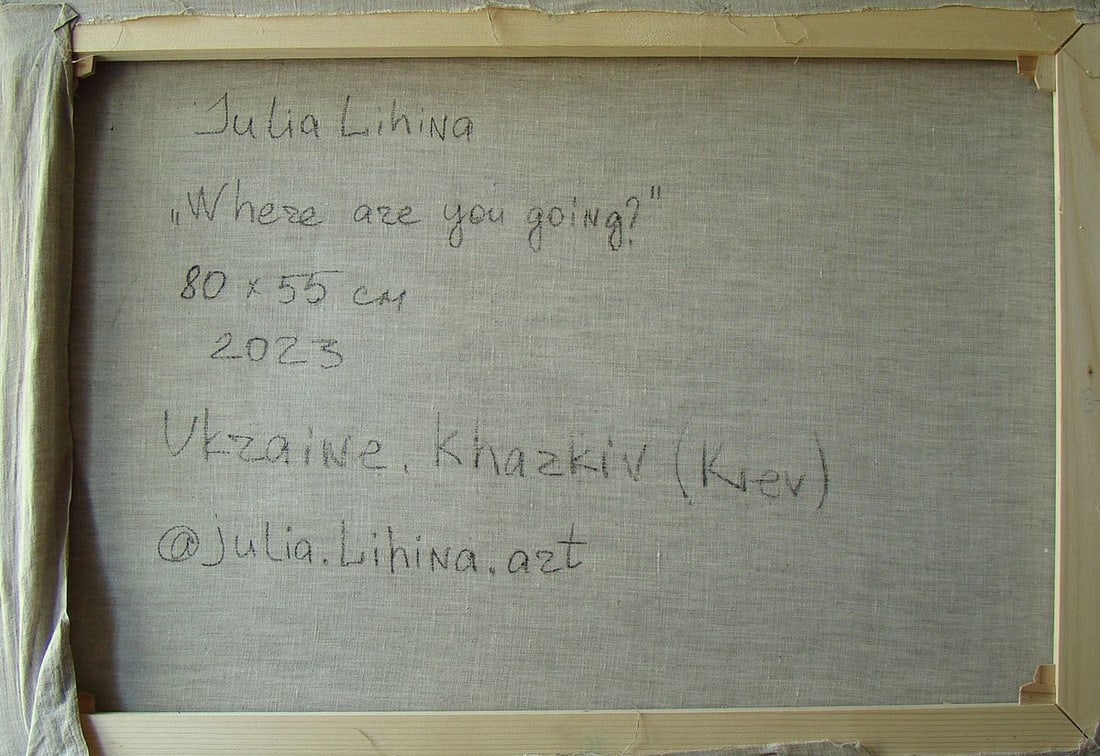 Julia Lihina
„Where are you going?"
80 x 55 см
2023
Ukraine. Kharkiv (Kiev)
@julia.Lihina.art